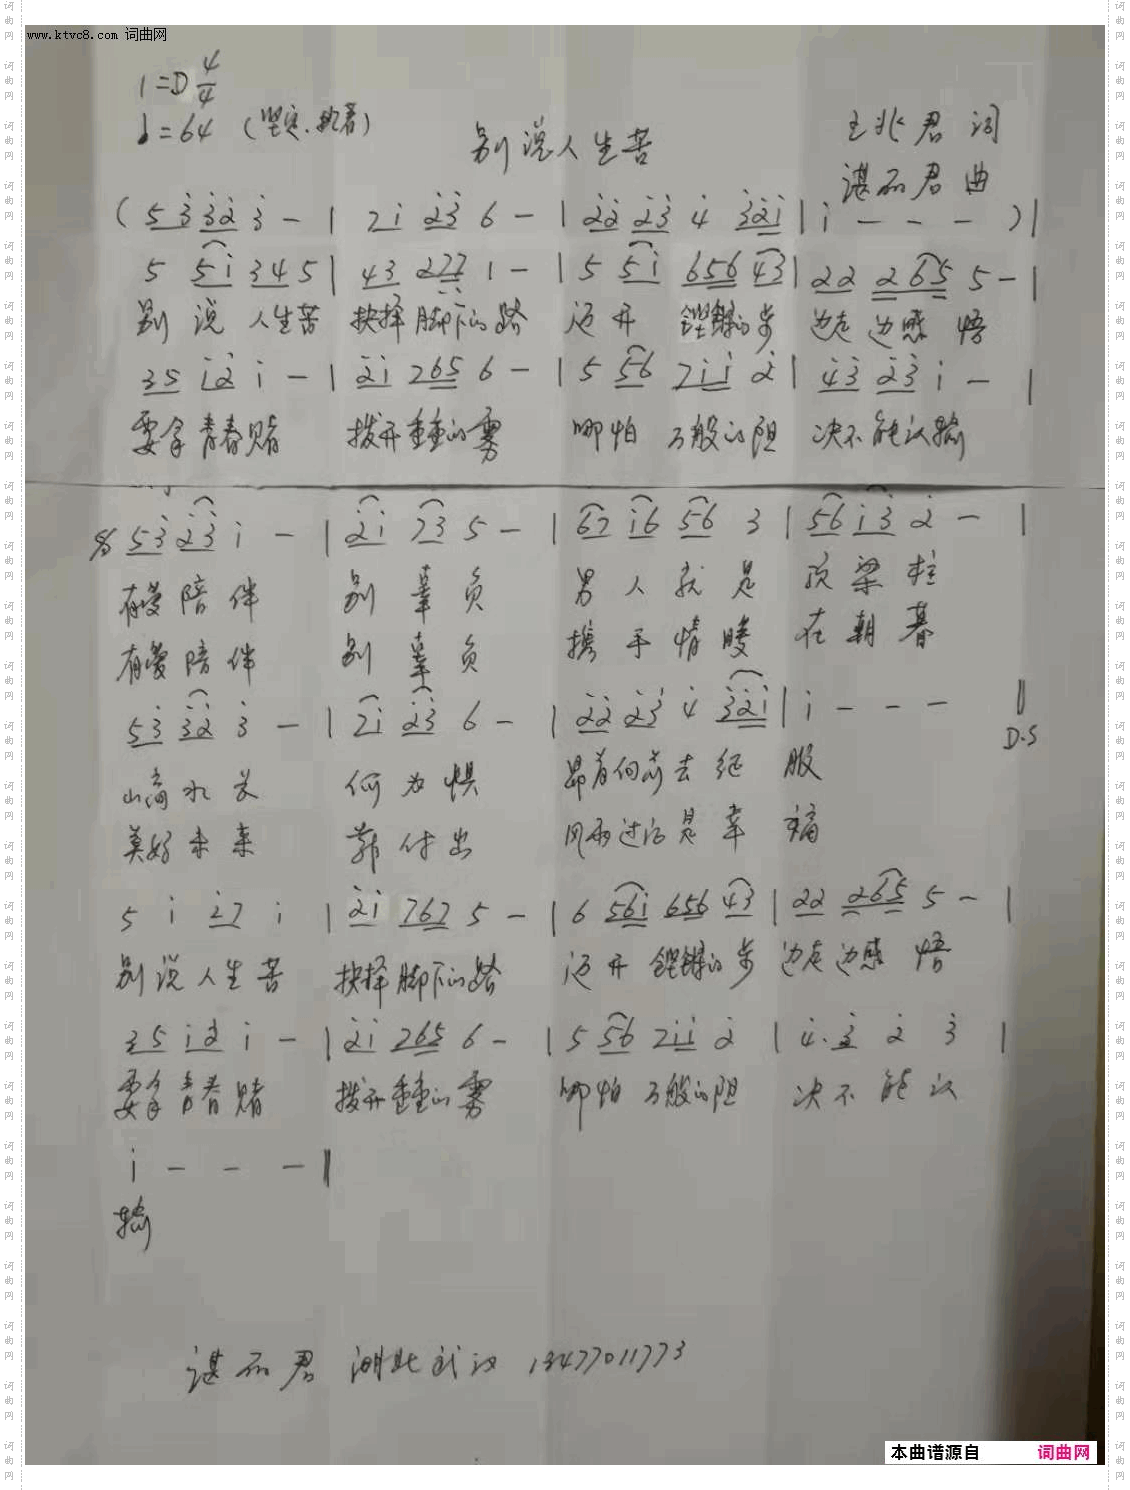 www.ktvc8.com 词曲网
1=D 4/4
♩=64 (坚定、执着)
别说人生苦
王兆君 词
谌丽君 曲
(5 3̇ 3̇ 2̇ 3̇ - | 7 1̇ 2̇ 3̇ 6 - | 2̇ 2̇ 2̇ 3̇ 4̇ 3̇ 2̇ 1̇ | 1̇ - - - ) |
5 5 1̇ 3 4 5 | 4 3 2 7 7 1 - | 5 5 1̇ 6 5 6 4 3 | 2 2 2 6 5 5 - |
别 说 人生苦 抉择脚下的路 迈 开 铿锵的步 边走边感 悟
3 5 1̇ 2̇ 1̇ - | 2̇ 1̇ 7 6 5 6 - | 5 5 6 7 1̇ 1̇ 2̇ | 4̇ 3̇ 2̇ 3̇ 1̇ - |
要拿青春赌 拨开重重的雾 哪怕 万般的阻 决不能认输
5 3̇ 2̇ 3̇ 1̇ - | 2̇ 1̇ 7 3 5 - | 6 7 1̇ 6 5 6 3 | 5 6 1̇ 3̇ 2̇ - |
有爱陪伴 别 辜 负 男 人 就 是 顶 梁 柱
有爱陪伴 别 辜 负 携 手 情 暖 在 朝 暮
5 3̇ 3̇ 2̇ 3̇ - | 7 1̇ 2̇ 3̇ 6 - | 2̇ 2̇ 2̇ 3̇ 4̇ 3̇ 2̇ 1̇ | 1̇ - - - ‖
D.S
山高水长 何 为 惧 昂首向前去征 服
美好未来 靠 付 出 风雨过后是幸 福
5 1̇ 2̇ 7 1̇ | 2̇ 1̇ 7 6 7 5 - | 6 5 6 1̇ 6 5 6 4 3 | 2 2 2 6 5 5 - |
别 说 人生 苦 抉择脚下的路 迈 开 铿锵的步 边走边感 悟
3 5 1̇ 2̇ 1̇ - | 2̇ 1̇ 7 6 5 6 - | 5 5 6 7 1̇ 1̇ 2̇ | 4̇. 3̇ 2̇ 3̇ |
要拿青春赌 拨开重重的雾 哪怕 万般的阻 决不 能 认
1̇ - - - ‖
输
谌丽君 湖北武汉 13477011773
本曲谱源自 词曲网